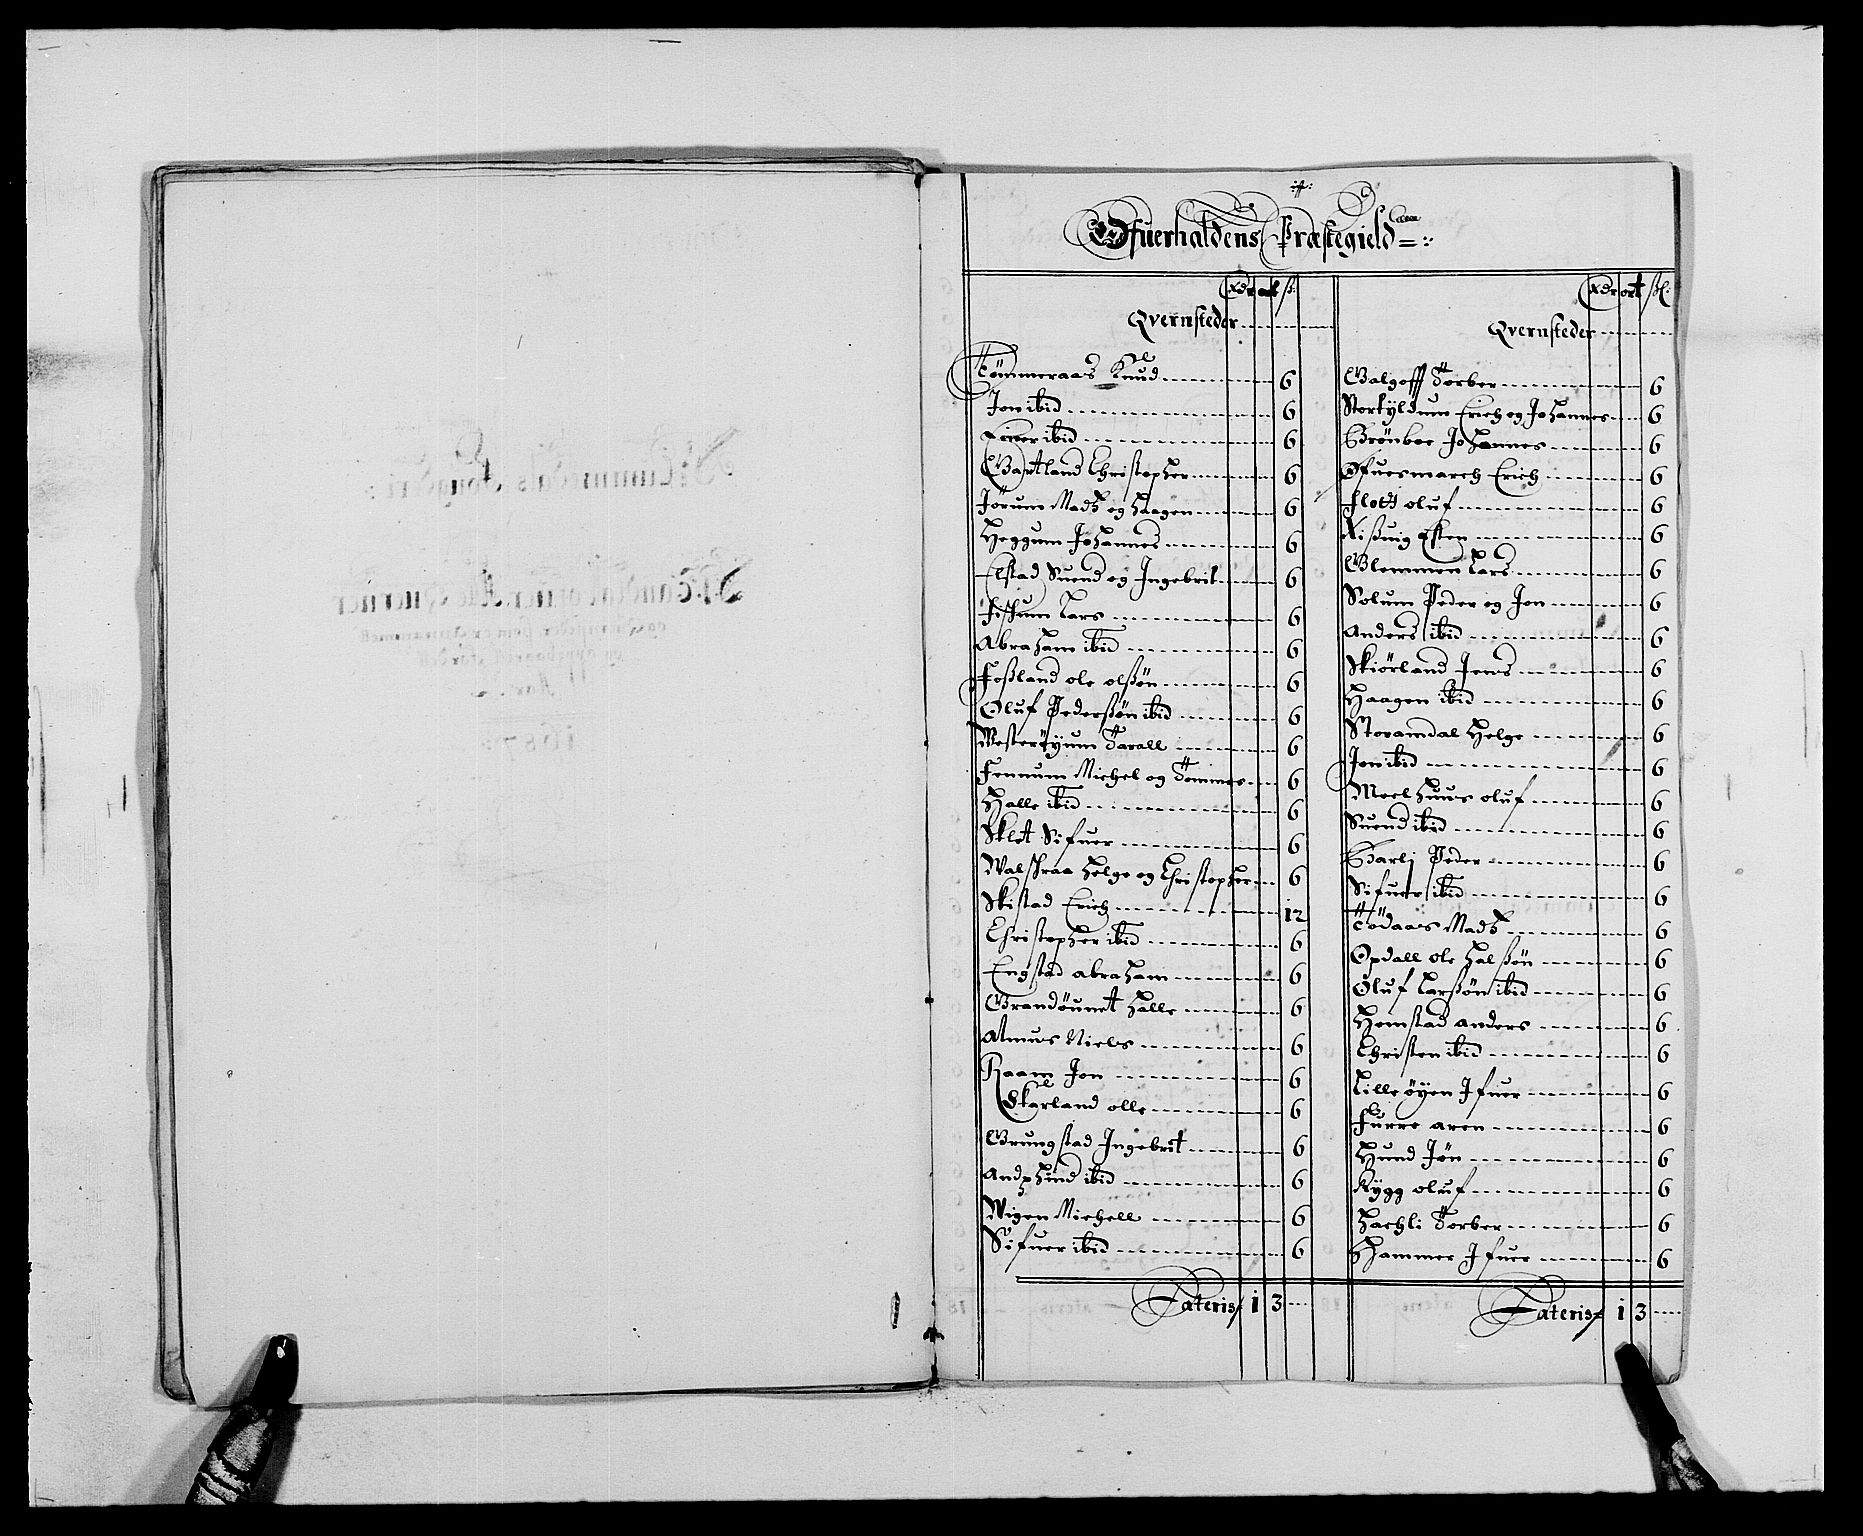 Ofuerhaldens Præstegield
Rdr ort ß:
Qvernsteder
Tömmeraas Knud 6
Jon ibid 6
Einer ibid 6
Bartland Christopher 6
Jörum Madz og Haagen 6
Heggum Johannes 6
Elstad Suend og Ingebrit 6
Fischum Lars 6
Abraham ibid 6
Foßland ole olßön 6
Oluf Pederßön ibid 6
Westertyum Tarall 6
Fennum Michel og Tommes 6
Halle ibid 6
Sklet Sifuer 6
Walskraa Helge og Christopher 6
Skistad Erich 12
Christopher ibid 6
Engstad Abraham 6
Grandöunet Halle 6
Almus Niels 6
Raam Jon 6
Skarland olle 6
Grungstad Ingebrit 6
Ibid 6
Wigen Michell 6
Sifuer ibid 6
Lateris 1 3
Rdr ort ßl:
Qvernsteder
Galgoff Torber 6
Storkyldum Erich og Johannes 6
Grönboe Johannes 6
Ofuesmarch Erich 6
Flott oluf 6
Rißuig Esten 6
Glemmen Lars 6
Solum Peder og Jon 6
Anders ibid 6
Skiörland Jens 6
Haagen ibid 6
Storamdal Helge 6
Jon ibid 6
Meelhuus oluf 6
Suend ibid 6
Barli Peder 6
Sifuer ibid 6
Tödaas Madz 6
Opdall ole Halßön 6
Oluf Larßön ibid 6
Hemstad anders 6
Christen ibid 6
Lilleöyen Ifuer 6
Furre aren 6
Hund Jön 6
Rygg oluf 6
Hachli Torber 6
Hammer Ifuer 6
Lateris 1 3